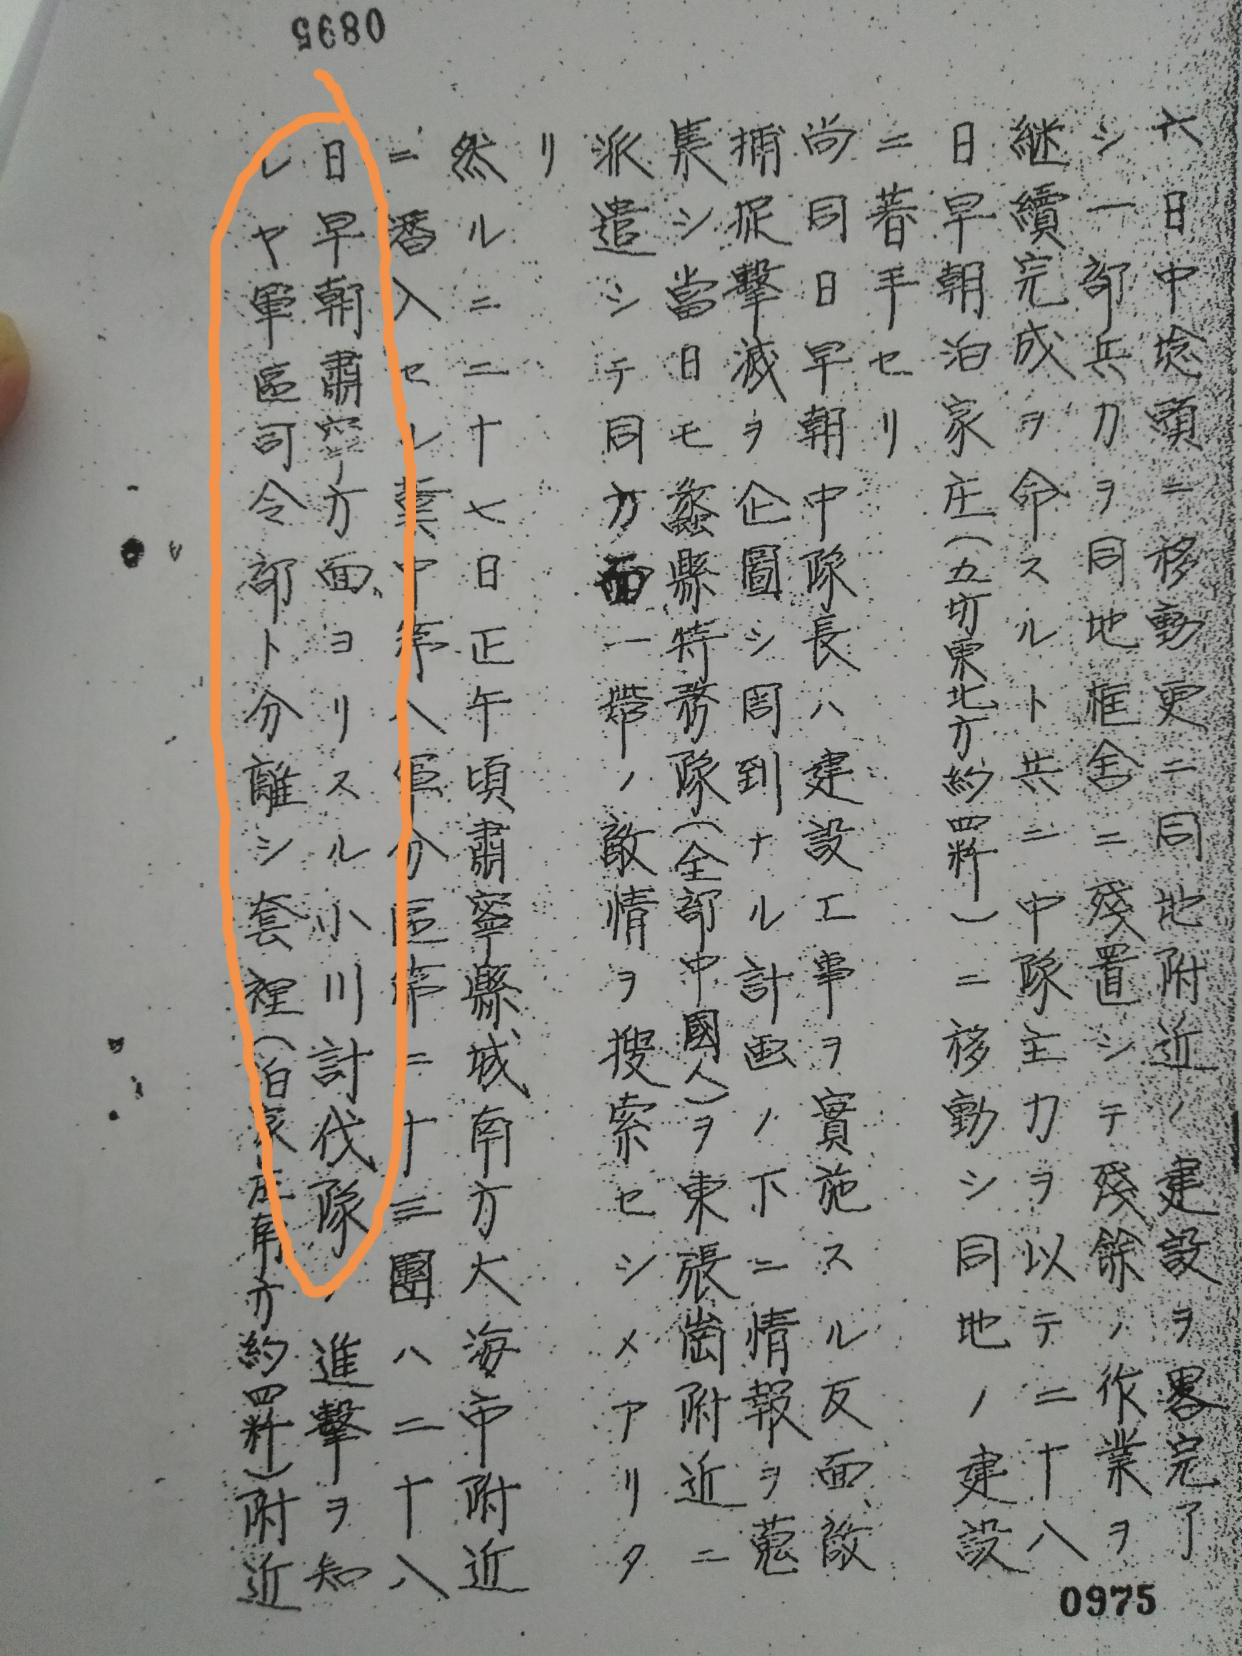 0895
六日中埝頭ニ移動更ニ同地附近ノ建設ヲ畧完了
シ一部兵力ヲ同地框舎ニ殘置シテ殘餘ノ作業ヲ
継續完成ヲ命スルト共ニ中隊主力ヲ以テ二十八
日早朝泊家庄(五圿東北方約四粁)ニ移動シ同地ノ建設
ニ着手セリ
尚同日早朝中隊長ハ建設工事ヲ實施スル反面敵
捕捉擊滅ヲ企圖シ周到ナル計画ノ下ニ情報ヲ蒐
集シ當日モ蠡縣特務隊(全部中國人)ヲ東張崗附近ニ
派遣シテ同方面一帶ノ敵情ヲ搜索セシメアリタ
リ
然ルニ二十七日正午頃肅寧縣城南方大海市附近
ニ潘入セル冀中第八軍分區第二十三團ハ二十八
日早朝肅寧方面ヨリスル小川討伐隊ノ進擊ヲ知
レヤ軍區司令部ト分離シ套裡(泊家庄南方約四粁)附近
0975